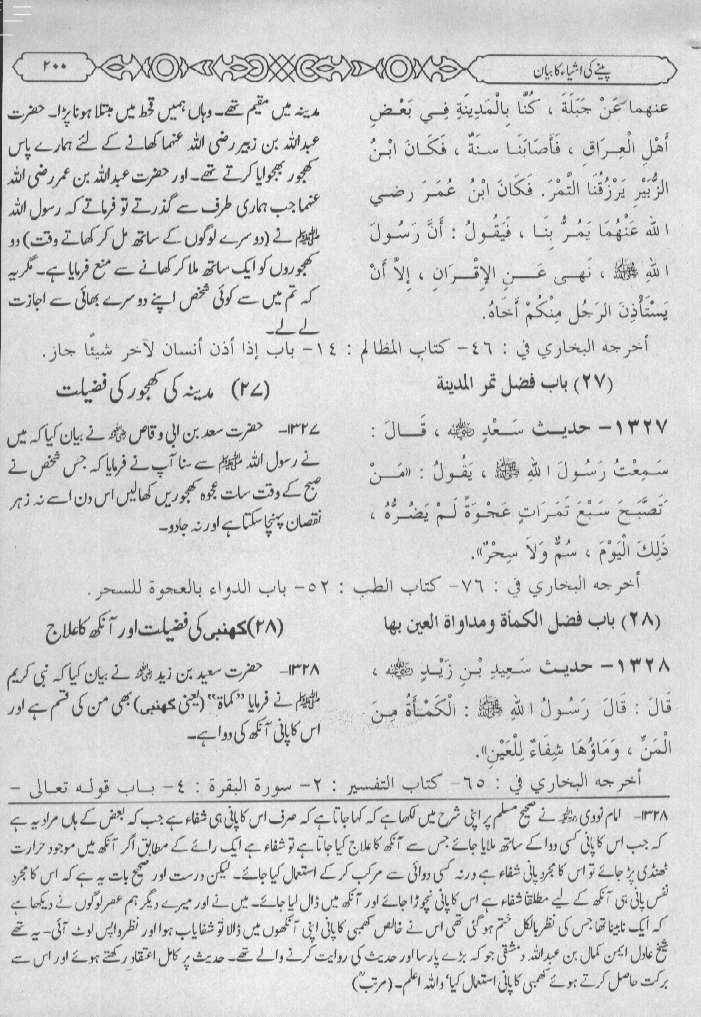 پینے کی اشیاء کا بیان
۲۰۰
عنهما عَنْ جَبَلَةَ ، كُنَّا بِالْمَدِينَةِ فِي بَعْضِ
أَهْلِ الْعِرَاقِ ، فَأَصَابَنَا سَنَةٌ ، فَكَانَ ابْنُ
الزُّبَيْرِ يَرْزُقُنَا التَّمْرَ. فَكَانَ ابْنُ عُمَرَ رضي
الله عَنْهُمَا يَمُرُّ بِنَا ، فَيَقُولُ : أَنَّ رَسُولَ
اللهِ ﷺ ، نَهى عَنِ الإِقْرَانِ ، إِلاَّ أَنْ
يَسْتَأْذِنَ الرَّجُل مِنْكُمْ أَخَاهُ.
مدینہ میں مقیم تھے۔ وہاں ہمیں قحط میں مبتلا ہونا پڑا۔ حضرت
عبداللہ بن زبیر رضی اللہ عنہما کھانے کے لئے ہمارے پاس
کھجور بھجوایا کرتے تھے۔ اور حضرت عبداللہ بن عمر رضی اللہ
عنہما جب ہماری طرف سے گذرتے تو فرماتے کہ رسول اللہ
ﷺ نے (دوسرے لوگوں کے ساتھ مل کر کھاتے وقت) دو
کھجوروں کو ایک ساتھ ملا کر کھانے سے منع فرمایا ہے۔ مگر یہ
کہ تم میں سے کوئی شخص اپنے دوسرے بھائی سے اجازت
لے لے۔
أخرجه البخاري في : ٤٦- كتاب المظالم : ١٤- باب إذا أذن أنسان لآخر شيئًا جاز.
(٢٧) باب فضل تمر المدينة
(۲۷) مدینہ کی کھجور کی فضیلت
١٣٢٧- حديث سَعْدٍ ؓ ، قَالَ :
سَمِعْتُ رَسُولَ اللهِ ﷺ ، يَقُولُ : «مَنْ
تَصَبَّحَ سَبْعَ تَمَرَاتٍ عَجْوَةً لَمْ يَضُرُّهُ ،
ذَلِكَ الْيَوْمَ ، سُمٌّ وَلاَ سِحْرٌ».
۱۳۲۷- حضرت سعد بن ابی وقاص ؓ نے بیان کیا کہ میں
نے رسول اللہ ﷺ سے سنا آپ نے فرمایا کہ جس شخص نے
صبح کے وقت سات عجوہ کھجوریں کھالیں اس دن اسے نہ زہر
نقصان پہنچا سکتا ہے اور نہ جادو۔
أخرجه البخاري في : ٧٦- كتاب الطب : ٥٢- باب الدواء بالعجوة للسحر.
(٢٨) باب فضل الكمأة ومداواة العين بها
(۲۸) کھنبی کی فضیلت اور آنکھ کا علاج
١٣٢٨- حديث سَعِيدِ بْنِ زَيْدٍ ؓ ،
قَالَ : قَالَ رَسُولُ اللهِ ﷺ : الْكَمْأَةُ مِنَ
الْمَنِّ ، وَمَاؤُهَا شِفَاءٌ لِلْعَيْنِ».
۱۳۲۸- حضرت سعید بن زید ؓ نے بیان کیا کہ نبی کریم
ﷺ نے فرمایا "کماۃ" (یعنی کھنبی) بھی من کی قسم ہے اور
اس کا پانی آنکھ کی دوا ہے۔
أخرجه البخاري في : ٦٥- كتاب التفسير : ٢- سورة البقرة : ٤- باب قوله تعالى -
۱۳۲۸- امام نووی ؒ نے صحیح مسلم پر اپنی شرح میں لکھا ہے کہ کہا جاتا ہے کہ صرف اس کا پانی ہی شفاء ہے جب کہ بعض کے ہاں مراد یہ ہے
کہ جب اس کا پانی کسی دوا کے ساتھ ملایا جائے جس سے آنکھ کا علاج کیا جاتا ہے تو شفاء ہے ایک رائے کے مطابق اگر آنکھ میں موجود حرارت
ٹھنڈی پڑ جائے تو اس کا مجرد پانی شفاء ہے ورنہ کسی دوائی سے مرکب کر کے استعمال کیا جائے۔ لیکن درست اور صحیح بات یہ ہے کہ اس کا مجرد
نفس پانی ہی آنکھ کے لیے مطلقا شفاء ہے اس کا پانی نچوڑا جائے اور آنکھ میں ڈال لیا جائے۔ میں نے اور میرے دیگر ہم عصر لوگوں نے دیکھا ہے
کہ ایک نابینا تھا جس کی نظر بالکل ختم ہو گئی تھی اس نے خالص کھمبی کا پانی اپنی آنکھوں میں ڈالا تو شفایاب ہوا اور نظر واپس لوٹ آئی۔ یہ تھے
شیخ عادل ایمن کمال بن عبداللہ دمشقی جو کہ بڑے پارسا اور حدیث کی روایت کرنے والے تھے۔ حدیث پر کامل اعتقاد رکھتے ہوئے اور اس سے
برکت حاصل کرتے ہوئے کھمبی کا پانی استعمال کیا' واللہ اعلم۔ (مرتبؒ)